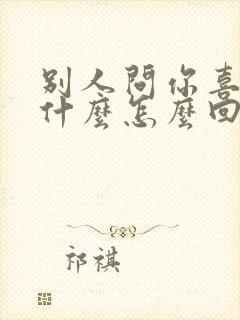 別人問你喜
什麼怎麼回
祁祺